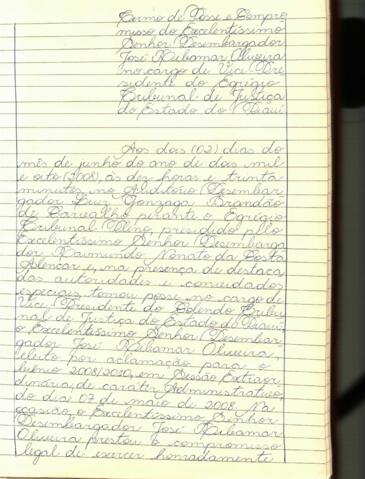 Termo de Posse e Compro
misso do Excelentíssimo
Senhor Desembargador
José Ribamar Oliveira
no cargo de Vice-Pre
sidente do Egrégio
Tribunal de Justiça
do Estado do Piauí
Aos dois (02) dias do
mês de junho do ano de dois mil
e oito (2008), às dez horas e trinta
minutos, no Auditório Desembar
gador Luiz Gonzaga Brandão
de Carvalho perante o Egrégio
Tribunal Pleno, presidido pelo
Excelentíssimo Senhor Desembarga
dor Raimundo Nonato da Costa
Alencar e, na presença de destaca
das autoridades e convidados
especiais, tomou posse no cargo de
Vice-Presidente do Colendo Tribu
nal de Justiça do Estado do Piauí,
o Excelentíssimo Senhor Desembar
gador José Ribamar Oliveira,
eleito por aclamação para o
biênio 2008/2010, em Sessão Extraor
dinária, de caráter Administrativo,
do dia 07 de maio de 2008. Na
ocasião, o Excelentíssimo Senhor
Desembargador José Ribamar
Oliveira prestou o compromisso
legal de exercer honradamente